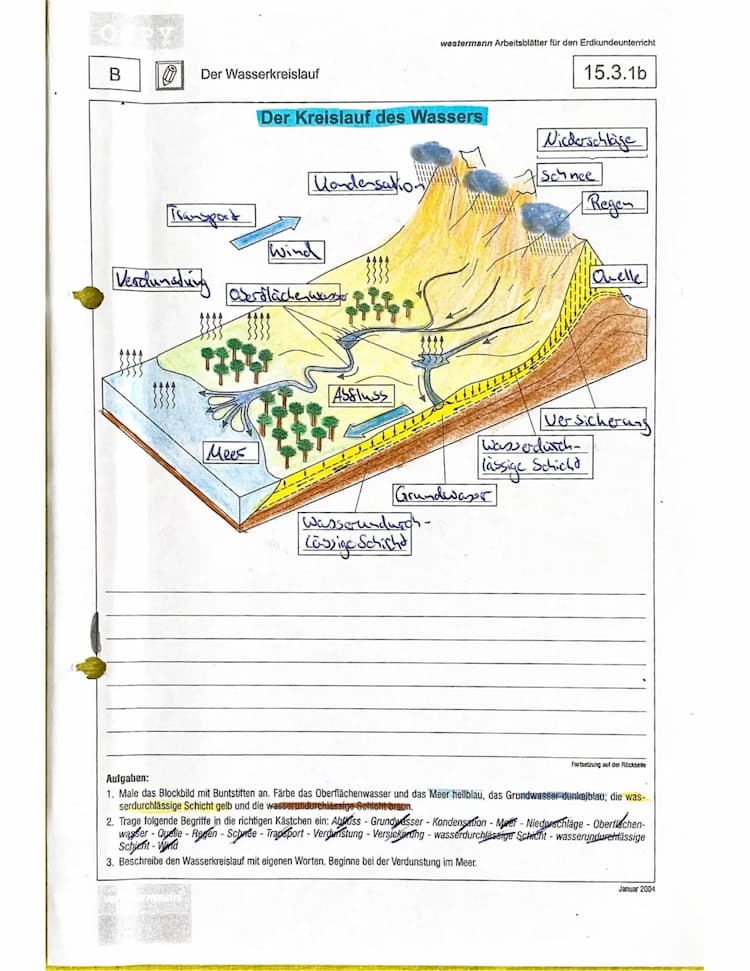 COPY
westermann Arbeitsblätter für den Erdkundeunterricht
B
Der Wasserkreislauf
15.3.1b
Der Kreislauf des Wassers
Niederschläge
Kondensation
Schnee
Regen
Transport
Wind
Verdunstung
Oberflächenwasser
Quelle
Abfluss
Meer
Versicherung
Wasserdurch-
lässige Schicht
Grundwasser
Wasserundurch-
lässige Schicht
Fortsetzung auf der Rückseite
Aufgaben:
1. Male das Blockbild mit Buntstiften an. Färbe das Oberflächenwasser und das Meer hellblau, das Grundwasser dunkelblau, die was-
serdurchlässige Schicht gelb und die wasserundurchlässige Schicht braun.
2. Trage folgende Begriffe in die richtigen Kästchen ein: Abfluss - Grundwasser - Kondensation - Meer - Niederschläge - Oberflächen-
wasser - Quelle - Regen - Schnee - Transport - Verdunstung - Versickerung - wasserdurchlässige Schicht - wasserundurchlässige
Schicht - Wind
3. Beschreibe den Wasserkreislauf mit eigenen Worten. Beginne bei der Verdunstung im Meer.
Januar 2004